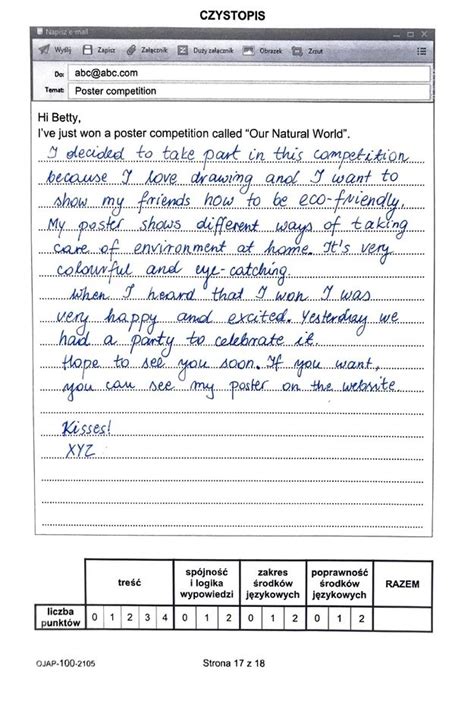 CZYSTOPIS
Napisz e-mail
Wyślij Zapisz Załącznik Duży załącznik Obrazek Zrzut
Do: abc@abc.com
Temat: Poster competition
Hi Betty,
I've just won a poster competition called "Our Natural World".
I decided to take part in this competition
because I love drawing and I want to
show my friends how to be eco-friendly.
My poster shows different ways of taking
care of environment at home. It's very
colourful and eye-catching.
When I heard that I won I was
very happy and excited. Yesterday we
had a party to celebrate it.
Hope to see you soon. If you want,
you can see my poster on the website
Kisses!
XYZ
treść spójność i logika wypowiedzi zakres środków językowych poprawność środków językowych RAZEM
liczba punktów 0 1 2 3 4 0 1 2 0 1 2 0 1 2
OJAP-100-2105 Strona 17 z 18